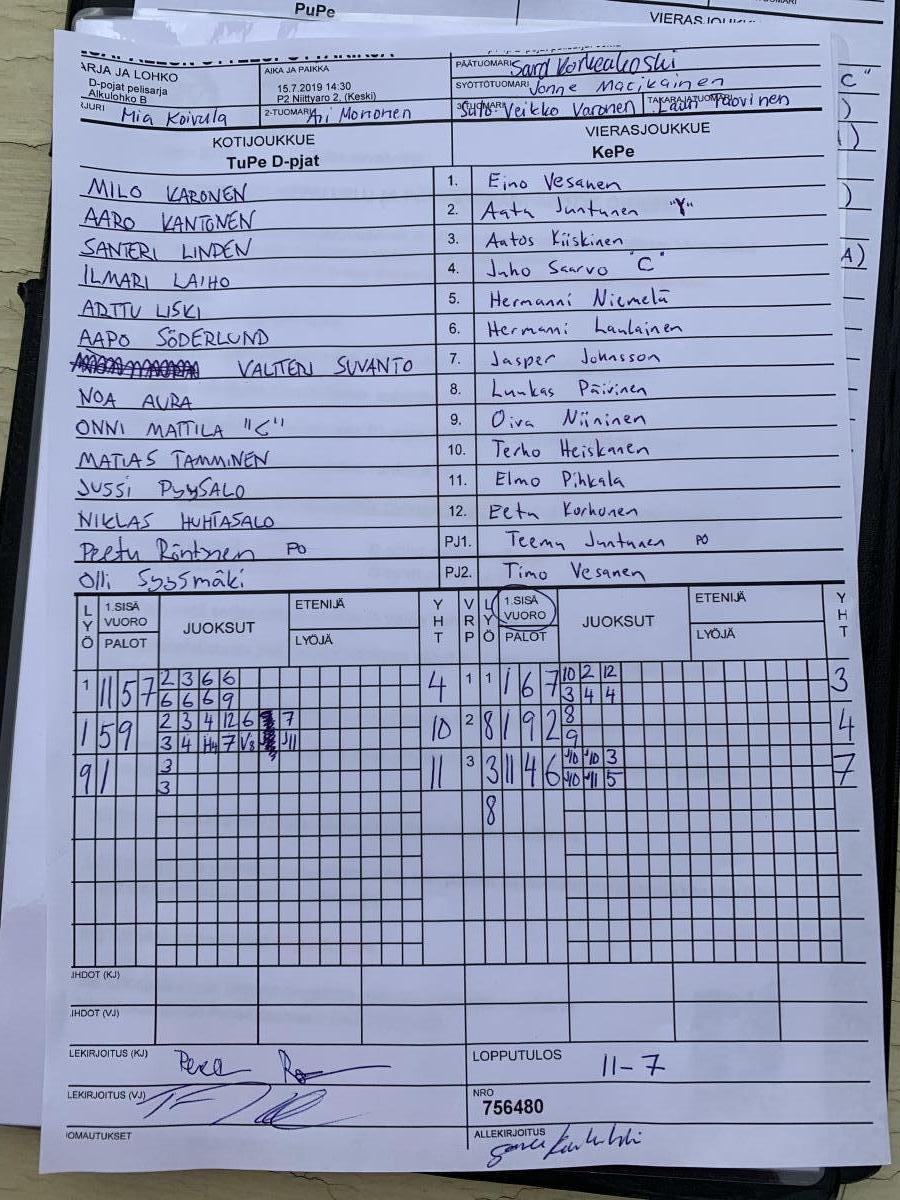 PuPe
VIERASJOUKKUE
ARJA JA LOHKO
D-pojat pelisarja
Alkulohko B
AIKA JA PAIKKA
15.7.2019 14:30
P2 Niittyaro 2, (Keski)
PÄÄTUOMARI
SYÖTTÖTUOMARI Janne Matikainen
JURI Mia Koivula
2-TUOMARI Ari Mononen
3-TUOMARI Veikko Varonen
TAKARAJATUOMARI Lauri
KOTIJOUKKUE
TuPe D-pjat
VIERASJOUKKUE
KePe
MILO KARONEN 1. Eino Vesanen
AARO KANTONEN 2. Aatu Juntunen "Y"
SANTERI LINDEN 3. Aatos Kiiskinen
ILMARI LAIHO 4. Juho Saarvo "C"
ARTTU LISKI 5. Hermanni Niemelä
AAPO SÖDERLUND 6. Hermanni Laulainen
VALTTERI SUVANTO 7. Jasper Johnsson
NOA AURA 8. Luukas Päivinen
ONNI MATTILA "C" 9. Oiva Niininen
MATIAS TAMMINEN 10. Terho Heiskanen
JUSSI PYYSALO 11. Elmo Pihkala
NIKLAS HUHTASALO 12. Eetu Korhonen
Peetu Röntynen PO PJ1. Teemu Juntunen PO
Olli Syysmäki PJ2. Timo Vesanen
LYÖ 1.SISÄ VUORO PALOT JUOKSUT ETENIJÄ LYÖJÄ YHT VRP LYÖ 1.SISÄ VUORO PALOT JUOKSUT ETENIJÄ LYÖJÄ YHT
1 11 5 7 2 3 6 6 4 1 1 1 6 7 10 2 12 3
6 6 6 9 3 4 4
1 5 9 2 3 4 12 6 7 10 2 8 1 9 2 8 4
3 4 H4 7 V8 J11 9
9 1 3 11 3 3 11 4 6 J10 J10 3 7
3 J10 J11 5
8
IHDOT (KJ)
IHDOT (VJ)
LEKIRJOITUS (KJ)
LOPPUTULOS 11-7
LEKIRJOITUS (VJ)
NRO
756480
OMAUTUKSET
ALLEKIRJOITUS